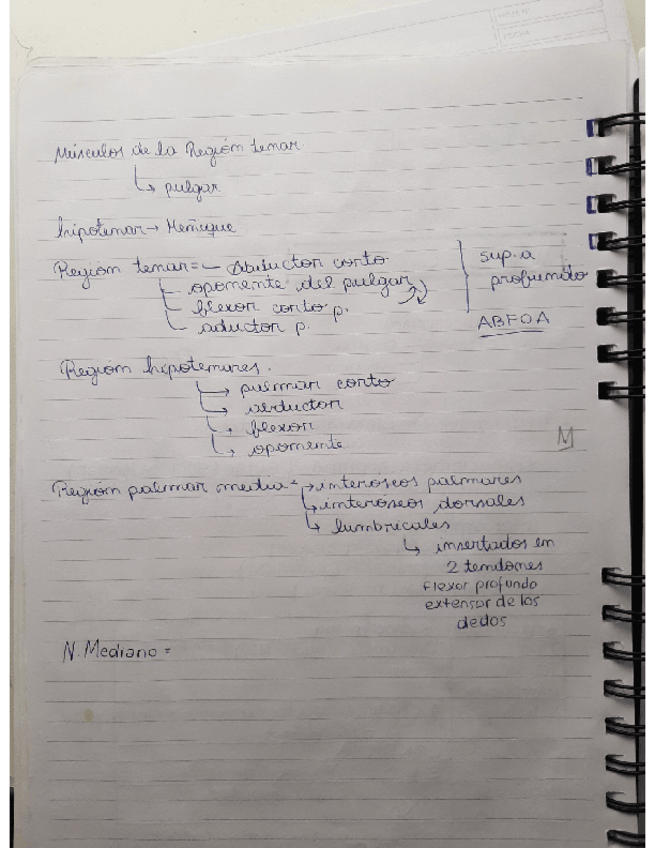 Músculos de la Región tenar
↳ pulgar
hipotenar → Meñique
Región tenar = - Abductor corto
oponente del pulgar
flexor corto p.
aductor p.
sup. a
profundo
ABFOA
Región hipotenares.
→ palmar corto
→ abductor
↳ flexor
↳ oponente
M
Región palmar media = → interóseos palmares
↳ interóseos dorsales
↳ lumbricales
↳ insertados en
2 tendones
flexor profundo
extensor de los
dedos
N. Mediano =